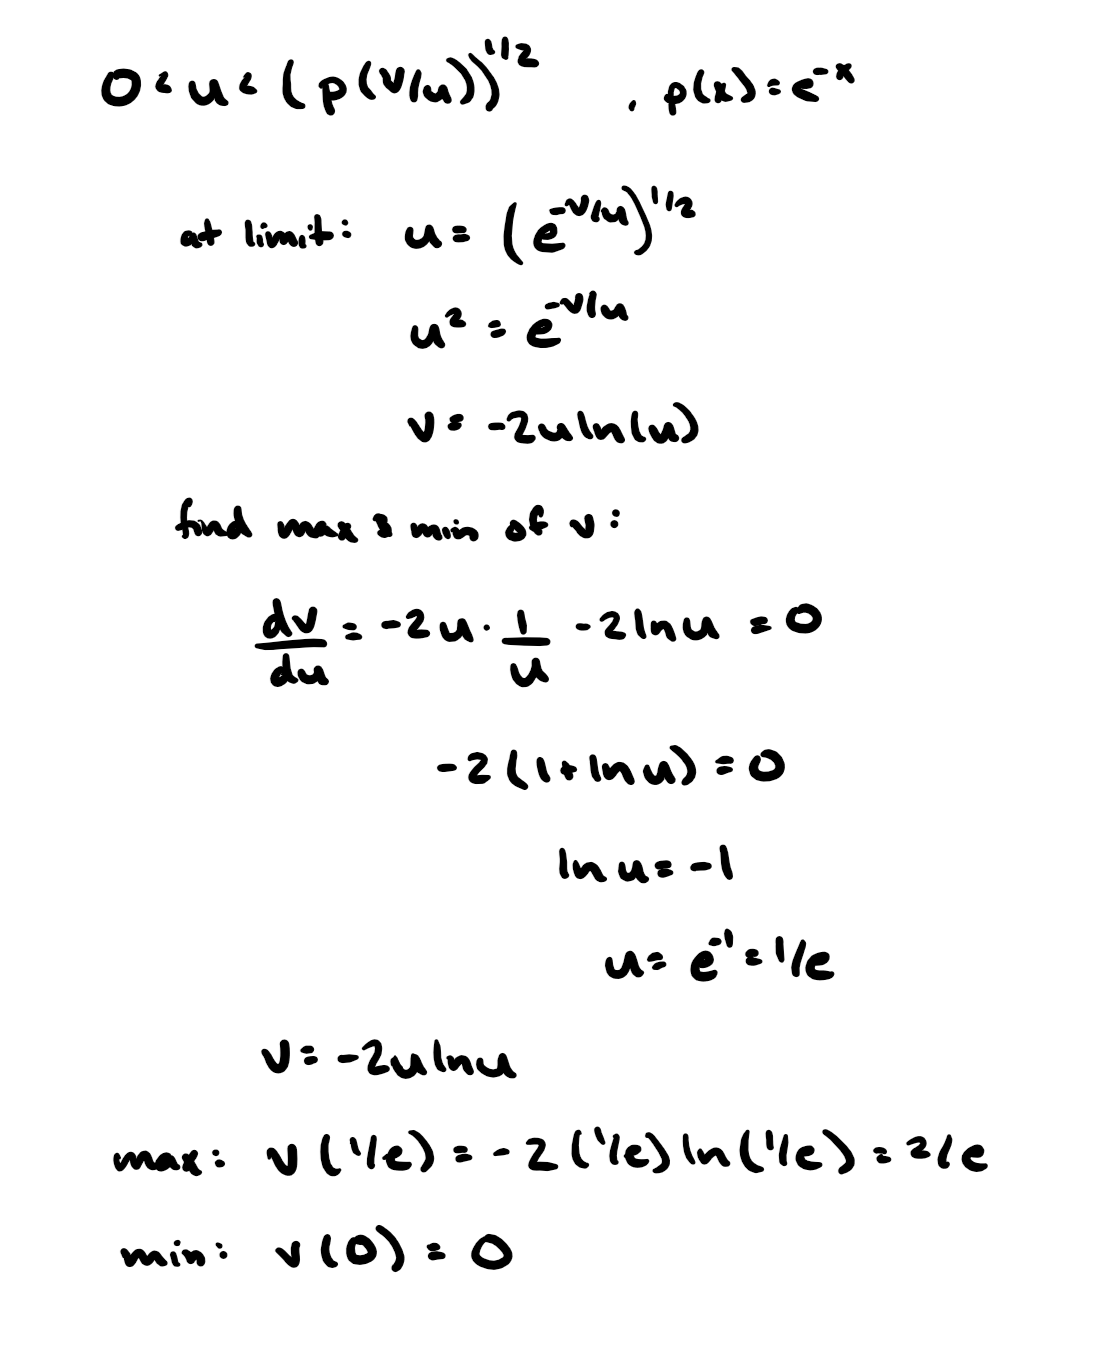 0 < u < (p(v/u))^1/2 , p(x) = e^-x
at limit: u = (e^-v/u)^1/2
u² = e^-v/u
v = -2u ln(u)
find max & min of v:
dv/du = -2u · 1/u - 2 ln u = 0
-2(1 + ln u) = 0
ln u = -1
u = e^-1 = 1/e
v = -2u ln u
max: v(1/e) = -2(1/e) ln(1/e) = 2/e
min: v(0) = 0